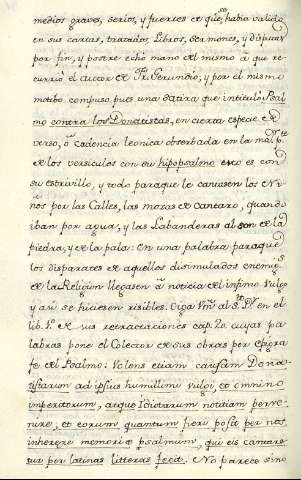 medios graves, serios, y fuertes de que se habia valido
en sus cartas, tratados, Libros, sermones, y disputas
por fin, y postre echó mano del mismo â que re-
currió el autor de Fr. Gerundio; y por el mismo
motibo compuso pues una satira que intituló: Psal
mo contra los Donatistas, en cierta especie de
verso, ô cadencia leonica obserbada en la maior pte.
de los versiculos con su hipopsalmo esto es con
su estrivillo, y todo paraque le cantasen los Ni-
ños por las Calles, las mozas de Cantaro, quando
iban por agua, y las Labanderas al son de la
piedra, y de la pala: En una palabra paraque
los disparates de aquellos disimulados enemigos
de la Religion llegasen â noticia del infimo vulgo
y aun se hiciesen risibles. Oiga Vm. al Sto. Dr. en el
lib. 1º de sus retractaciones cap. 20 cuyas pa
labras pone el Colector de sus obras por epigra
fe del Psalmo: Volens etiam causam Dona-
tistarum ad ipsius humillimi vulgi, et omnino
imperitorum, atque Idiotarum notitiam perve-
nire, et eorum quantum fieri posset per nos,
inherere memoriæ psalmum, qui eis cantare-
tur per latinas litteras feci. No parece sino